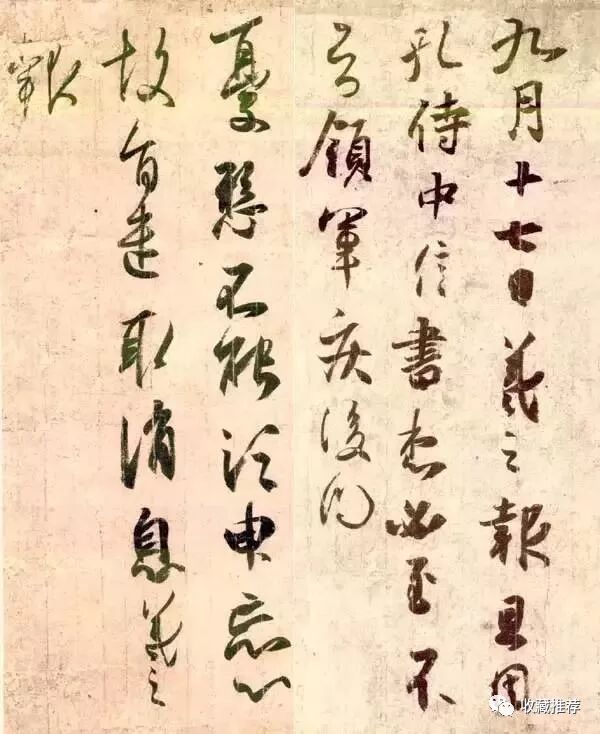 九月十七日羲之報且因
孔侍中信書想必至不
知領軍疾後問
憂懸不能須臾忘心
故旨遣取消息羲之
報
收藏推荐